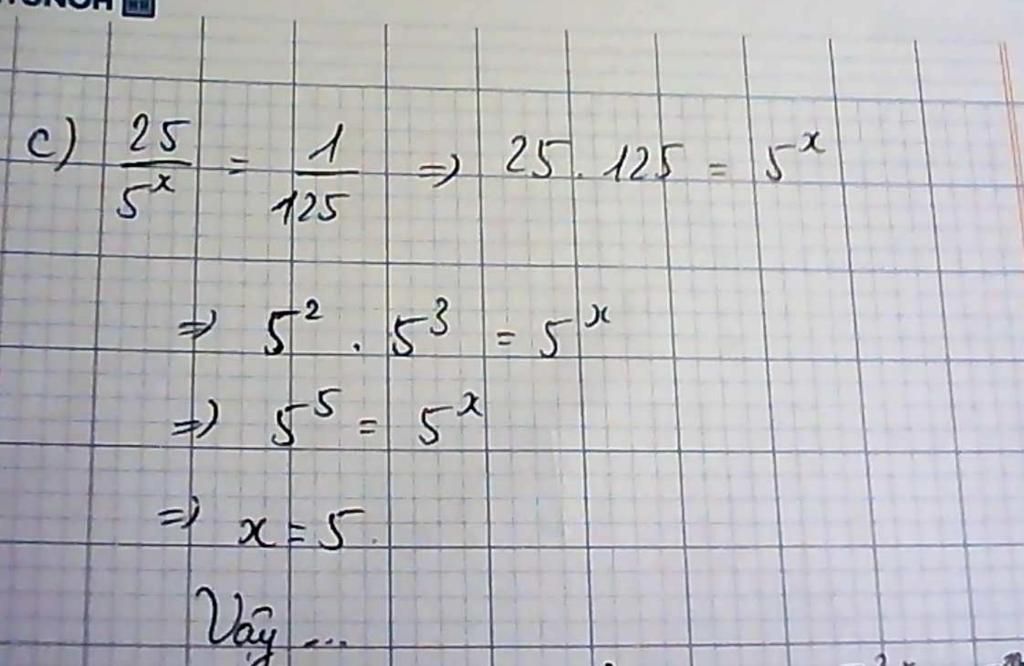 c) 25/5^x = 1/125 => 25 . 125 = 5^x
=> 5² . 5³ = 5^x
=> 5⁵ = 5^x
=> x = 5.
Vậy ...